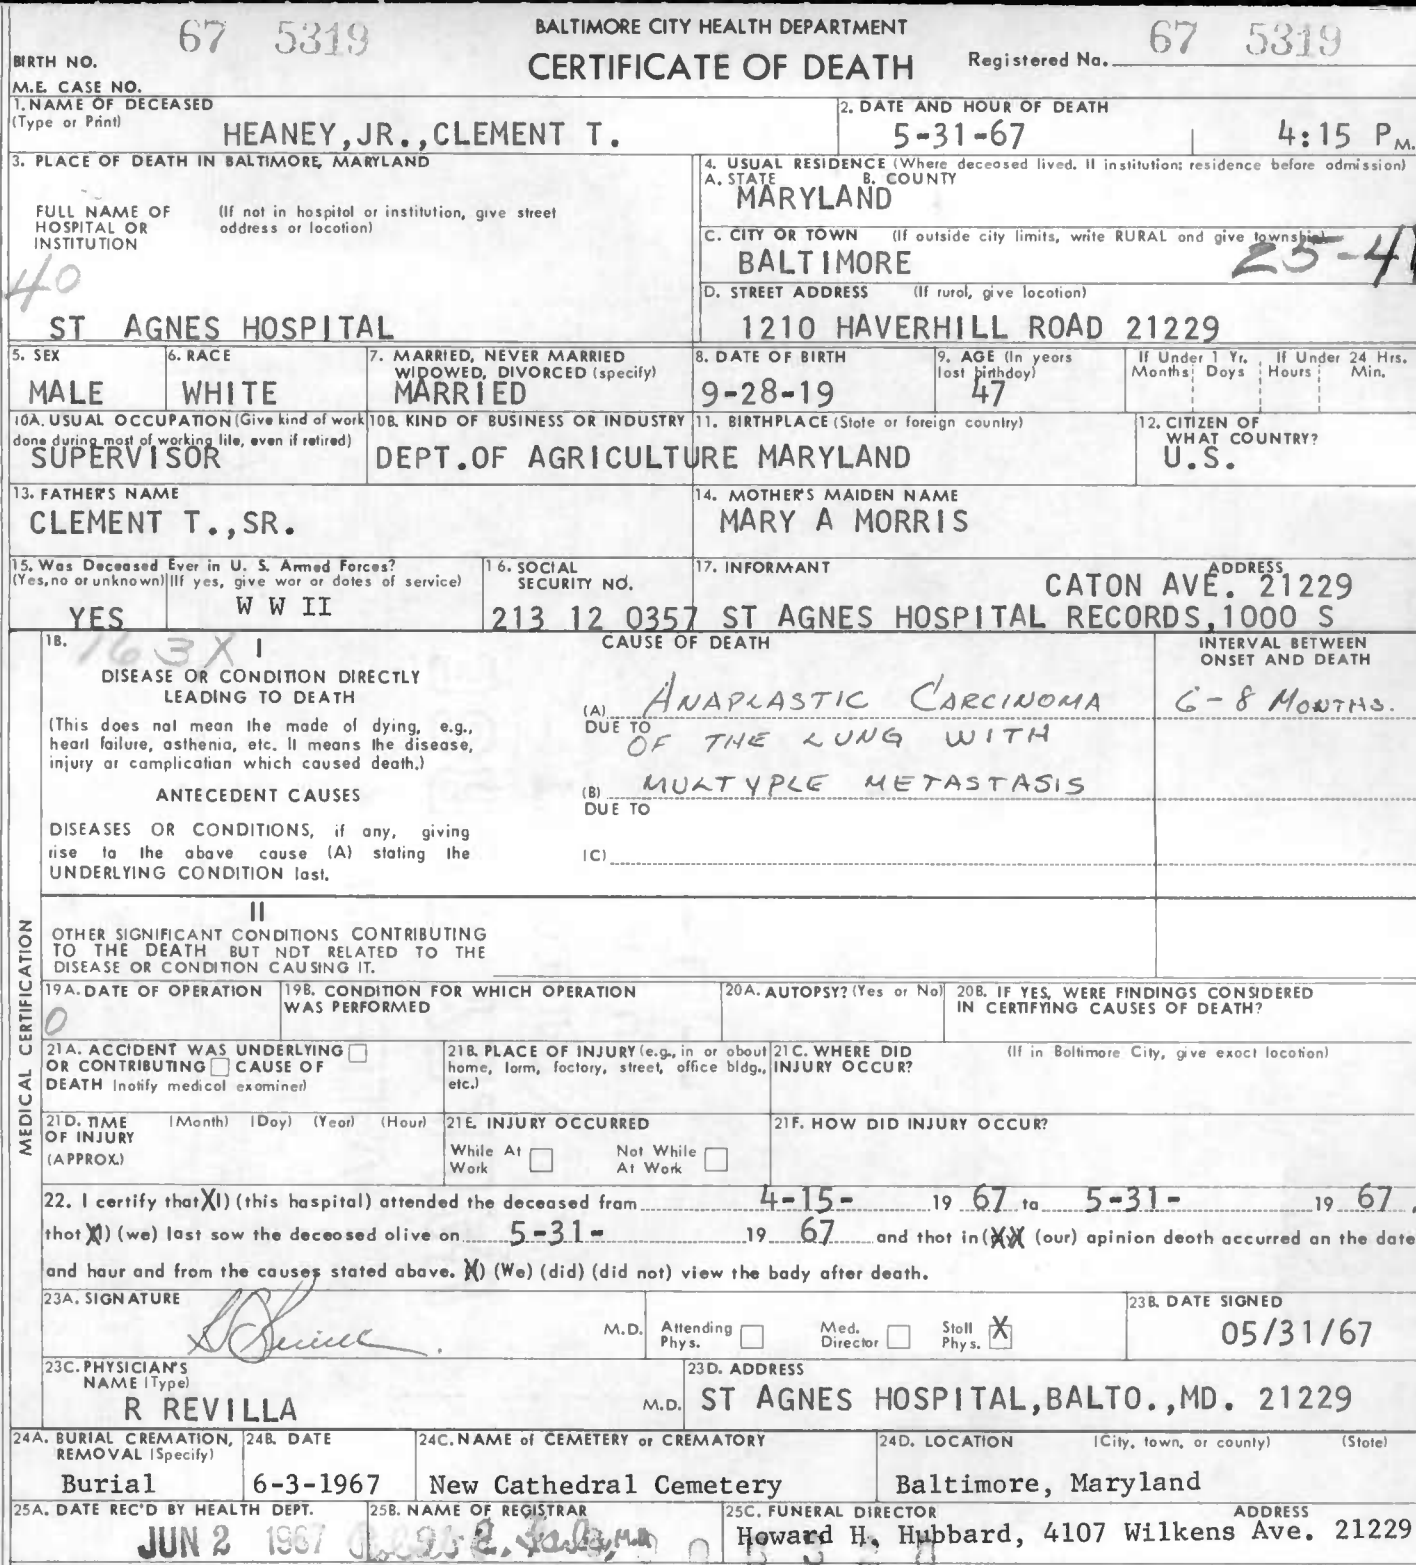 67 5319
BALTIMORE CITY HEALTH DEPARTMENT
67 5319
BIRTH NO.
CERTIFICATE OF DEATH
Registered No.
M.E. CASE NO.
1. NAME OF DECEASED
(Type or Print)
HEANEY, JR., CLEMENT T.
2. DATE AND HOUR OF DEATH
5-31-67 4:15 P M.
3. PLACE OF DEATH IN BALTIMORE, MARYLAND
FULL NAME OF HOSPITAL OR INSTITUTION
(If not in hospital or institution, give street address or location)
40
ST AGNES HOSPITAL
4. USUAL RESIDENCE (Where deceased lived. If institution: residence before admission)
A. STATE B. COUNTY
MARYLAND
C. CITY OR TOWN (If outside city limits, write RURAL and give township)
BALTIMORE 25-41
D. STREET ADDRESS (If rural, give location)
1210 HAVERHILL ROAD 21229
5. SEX
MALE
6. RACE
WHITE
7. MARRIED, NEVER MARRIED
WIDOWED, DIVORCED (specify)
MARRIED
8. DATE OF BIRTH
9-28-19
9. AGE (In years last birthday)
47
If Under 1 Yr. Months Days
If Under 24 Hrs. Hours Min.
10A. USUAL OCCUPATION (Give kind of work
done during most of working life, even if retired)
SUPERVISOR
10B. KIND OF BUSINESS OR INDUSTRY
DEPT. OF AGRICULTURE
11. BIRTHPLACE (State or foreign country)
MARYLAND
12. CITIZEN OF WHAT COUNTRY?
U.S.
13. FATHER'S NAME
CLEMENT T., SR.
14. MOTHER'S MAIDEN NAME
MARY A MORRIS
15. Was Deceased Ever in U. S. Armed Forces?
(Yes, no or unknown) (If yes, give war or dates of service)
YES W W II
16. SOCIAL SECURITY NO.
213 12 0357
17. INFORMANT ADDRESS
CATON AVE. 21229
ST AGNES HOSPITAL RECORDS, 1000 S
18. 163X I
CAUSE OF DEATH
INTERVAL BETWEEN ONSET AND DEATH
DISEASE OR CONDITION DIRECTLY
LEADING TO DEATH
(This does not mean the mode of dying, e.g.,
heart failure, asthenia, etc. It means the disease,
injury or complication which caused death.)
(A) ANAPLASTIC CARCINOMA 6-8 MONTHS.
DUE TO
OF THE LUNG WITH
ANTECEDENT CAUSES
(B) MULTYPLE METASTASIS
DUE TO
DISEASES OR CONDITIONS, if any, giving
rise to the above cause (A) stating the
UNDERLYING CONDITION last.
(C)
II
OTHER SIGNIFICANT CONDITIONS CONTRIBUTING
TO THE DEATH BUT NOT RELATED TO THE
DISEASE OR CONDITION CAUSING IT.
MEDICAL CERTIFICATION
19A. DATE OF OPERATION
0
19B. CONDITION FOR WHICH OPERATION
WAS PERFORMED
20A. AUTOPSY? (Yes or No)
20B. IF YES, WERE FINDINGS CONSIDERED
IN CERTIFYING CAUSES OF DEATH?
21A. ACCIDENT WAS UNDERLYING
OR CONTRIBUTING CAUSE OF
DEATH (notify medical examiner)
21B. PLACE OF INJURY (e.g., in or about
home, farm, factory, street, office bldg.,
etc.)
21C. WHERE DID INJURY OCCUR?
(If in Baltimore City, give exact location)
21D. TIME OF INJURY (APPROX.)
(Month) (Day) (Year) (Hour)
21E. INJURY OCCURRED
While At Work
Not While At Work
21F. HOW DID INJURY OCCUR?
22. I certify that X(I) (this hospital) attended the deceased from 4-15- 19 67 to 5-31- 19 67,
that X(I) (we) last saw the deceased alive on 5-31- 19 67 and that in (XX (our) opinion death occurred on the date
and hour and from the causes stated above. X) (We) (did) (did not) view the body after death.
23A. SIGNATURE
M.D.
Attending Phys.
Med. Director
Staff Phys. X
23B. DATE SIGNED
05/31/67
23C. PHYSICIAN'S NAME (Type)
R REVILLA M.D.
23D. ADDRESS
ST AGNES HOSPITAL, BALTO., MD. 21229
24A. BURIAL CREMATION, REMOVAL (Specify)
Burial
24B. DATE
6-3-1967
24C. NAME of CEMETERY or CREMATORY
New Cathedral Cemetery
24D. LOCATION (City, town, or county) (State)
Baltimore, Maryland
25A. DATE REC'D BY HEALTH DEPT.
JUN 2 1967
25B. NAME OF REGISTRAR
25C. FUNERAL DIRECTOR ADDRESS
Howard H. Hubbard, 4107 Wilkens Ave. 21229